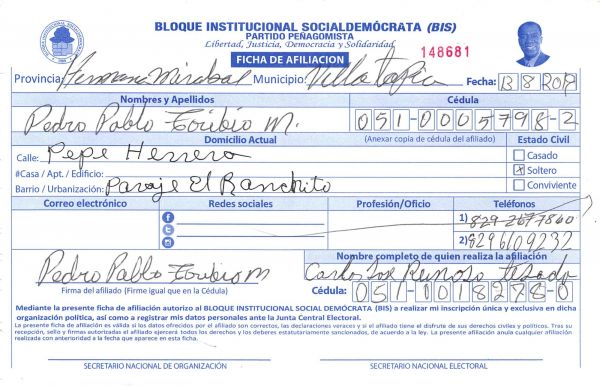 BLOQUE INSTITUCIONAL SOCIALDEMÓCRATA (BIS)
PARTIDO PEÑAGOMISTA
Libertad, Justicia, Democracia y Solidaridad
FICHA DE AFILIACION 148681
Provincia: Hermanas Mirabal Municipio: Villa Tapia Fecha: 13 8 2019
Nombres y Apellidos Cédula
Pedro Pablo Toribio M. 051-0005798-2
Domicilio Actual (Anexar copia de cédula del afiliado) Estado Civil
Calle: Pepe Herrera Casado
#Casa / Apt. / Edificio: X Soltero
Barrio / Urbanización: Paraje El Ranchito Conviviente
Correo electrónico Redes sociales Profesión/Oficio Teléfonos
1) 829-267 7860
2) 829 6109232
Nombre completo de quien realiza la afiliación
Pedro Pablo Toribio M Carlos José Reinoso
Firma del afiliado (Firme igual que en la Cédula) Cédula: 051-0018278-0
Mediante la presente ficha de afiliación autorizo al BLOQUE INSTITUCIONAL SOCIAL DEMÓCRATA (BIS) a realizar mi inscripción única y exclusiva en dicha
organización política, así como a registrar mis datos personales ante la Junta Central Electoral.
La presente ficha de afiliación es válida si los datos ofrecidos por el afiliado son correctos, las declaraciones veraces y si el afiliado tiene el disfrute de sus derechos civiles y políticos. Tras su
recepción, sello y firmas autorizadas el afiliado ejercerá todos los derechos y los deberes estatutariamente sancionados, de acuerdo a la ley. La presente afiliación anula cualquier afiliación
realizada con anterioridad a la fecha que aparece en esta ficha.
SECRETARIO NACIONAL DE ORGANIZACIÓN SECRETARIO NACIONAL ELECTORAL